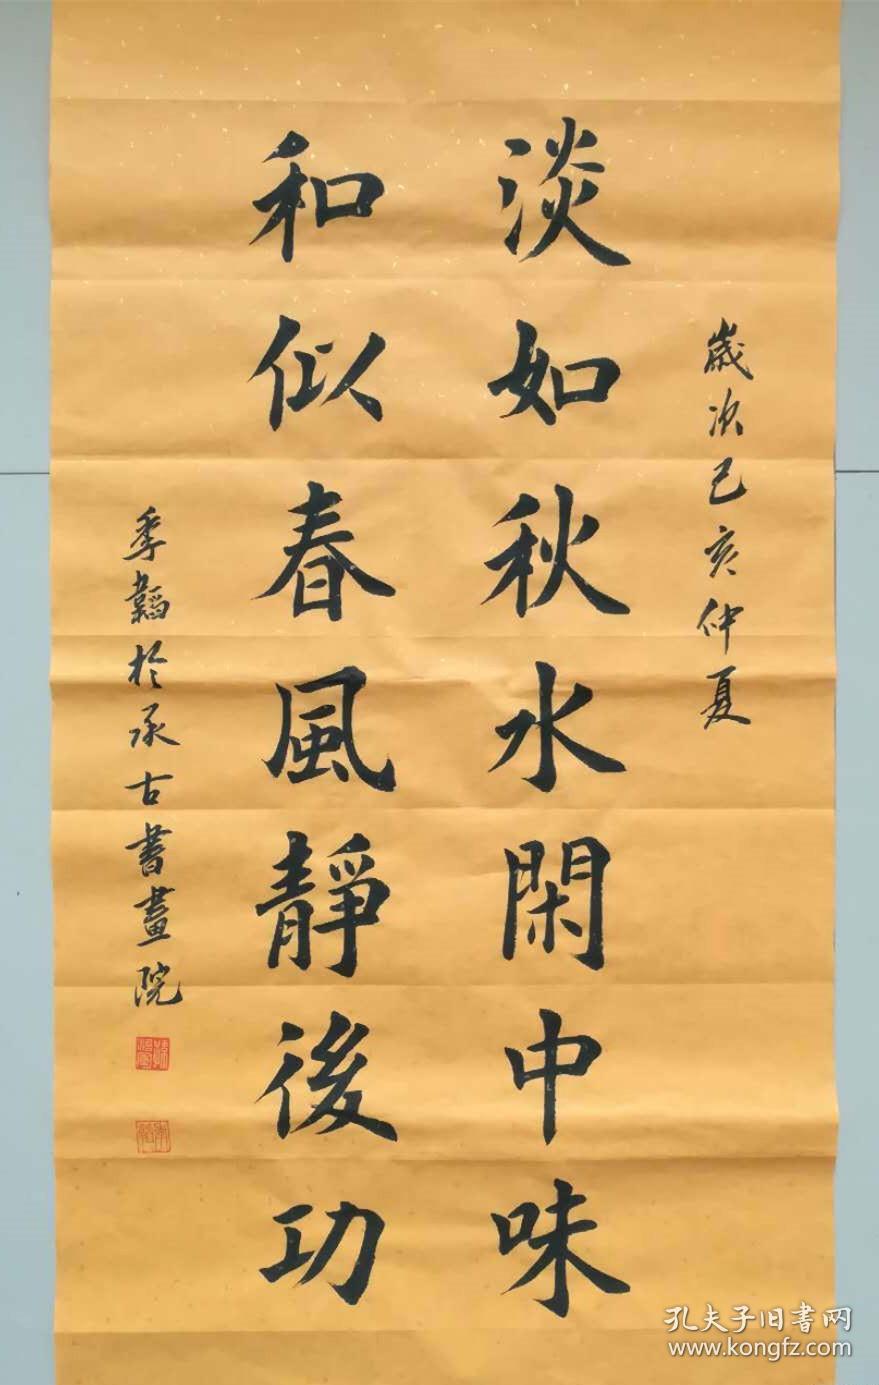 歲次己亥仲夏
淡如秋水閑中味
和似春風靜後功
季韜於承古書畫院
孔夫子旧书网
www.kongfz.com